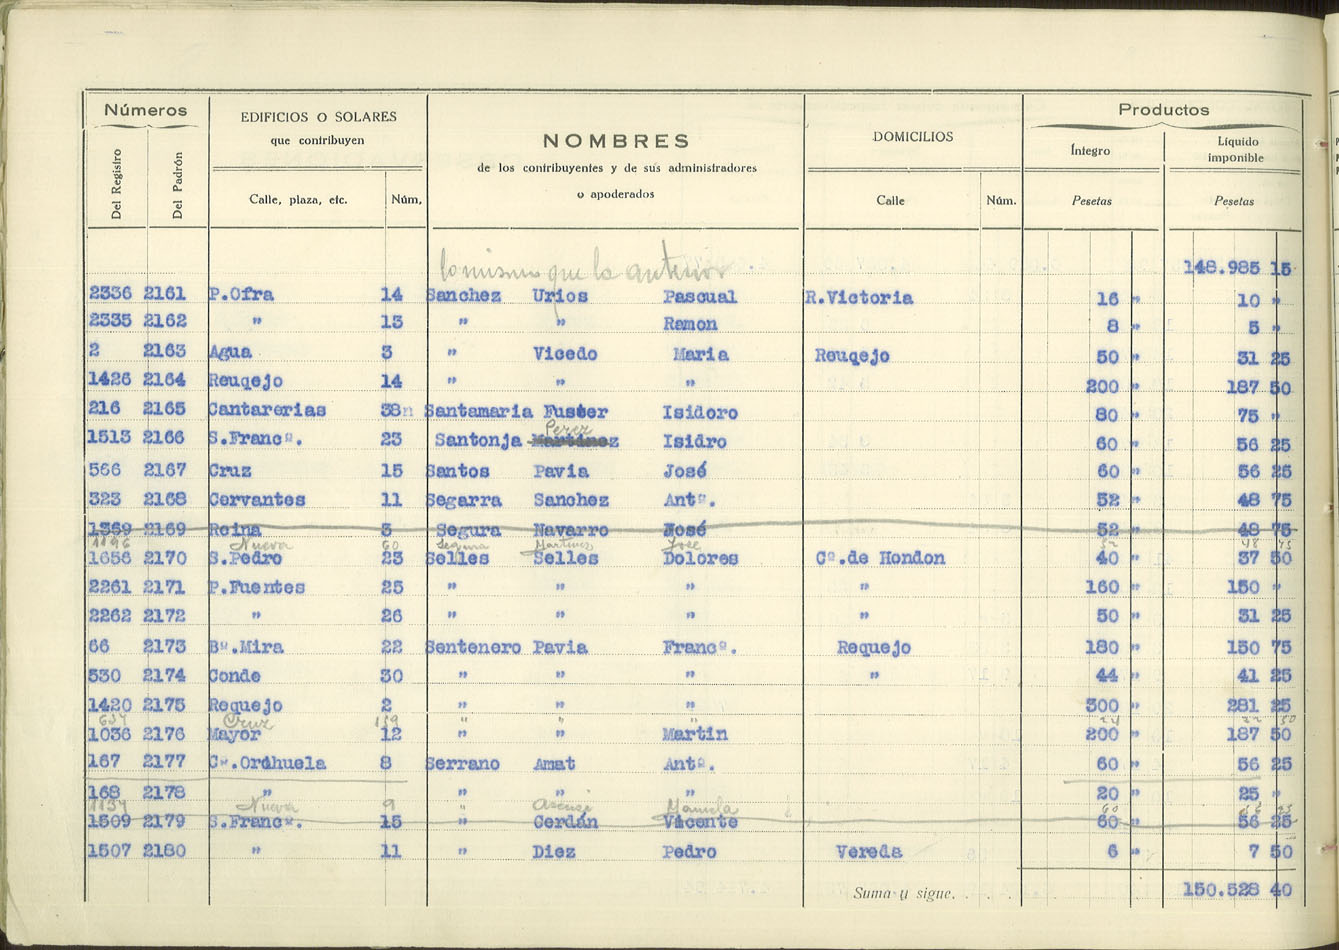 Números
EDIFICIOS O SOLARES
que contribuyen
NOMBRES
de los contribuyentes y de sus administradores
o apoderados
DOMICILIOS
Productos
Íntegro
Líquido
imponible
Del Registro
Del Padrón
Calle, plaza, etc.
Núm,
Calle
Núm.
Pesetas
Pesetas
lo mismo que la anterior
148.985 15
2336 2161 P.Ofra 14 Sanchez Urios Pascual R.Victoria 16 " 10 "
2335 2162 " 13 " " Ramon 8 " 5 "
2 2163 Agua 3 " Vicedo Maria Reuqejo 50 " 31 25
1426 2164 Reuqejo 14 " " " 200 " 187 50
216 2165 Cantarerias 38n Santamaria Fuster Isidoro 80 " 75 "
Perez
1513 2166 S.Francº. 23 Santonja Martinez Isidro 60 " 56 25
566 2167 Cruz 15 Santos Pavia José 60 " 56 25
323 2168 Cervantes 11 Segarra Sanchez Antº. 52 " 48 75
1369 2169 Reina 3 Segura Navarro José 52 " 48 75
1196 Nueva 60 Segura Martinez José 52 48 75
1656 2170 S.Pedro 23 Selles Selles Dolores Cº.de Hondon 40 " 37 50
2261 2171 P.Fuentes 25 " " " " 160 " 150 "
2262 2172 " 26 " " " " 50 " 31 25
66 2173 Bº.Mira 22 Sentenero Pavia Francº. Requejo 180 " 150 75
530 2174 Conde 30 " " " " 44 " 41 25
1420 2175 Requejo 2 " " " 300 " 281 25
637 Cruz 139 " " " 24 22 50
1036 2176 Mayor 12 " " Martin 200 " 187 50
167 2177 Cº.Orihuela 8 Serrano Amat Antº. 60 " 56 25
168 2178 " " " " 20 " 25 "
1134 Nueva 9 " Asensi Manuela 60 56 25
1509 2179 S.Francº. 15 " Cerdán Vicente 60 " 56 25
1507 2180 " 11 " Diez Pedro Vereda 6 " 7 50
Suma y sigue. 150.528 40